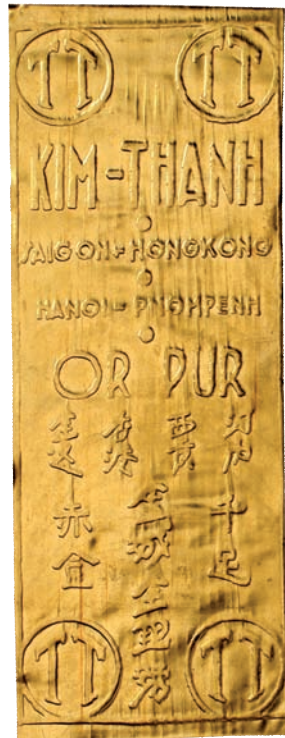 TT TT
KIM-THANH
SAIGON-HONGKONG
HANOI-PNOMPENH
OR PUR
河内
西貢
香港
千足
金城金
赤金
TT TT